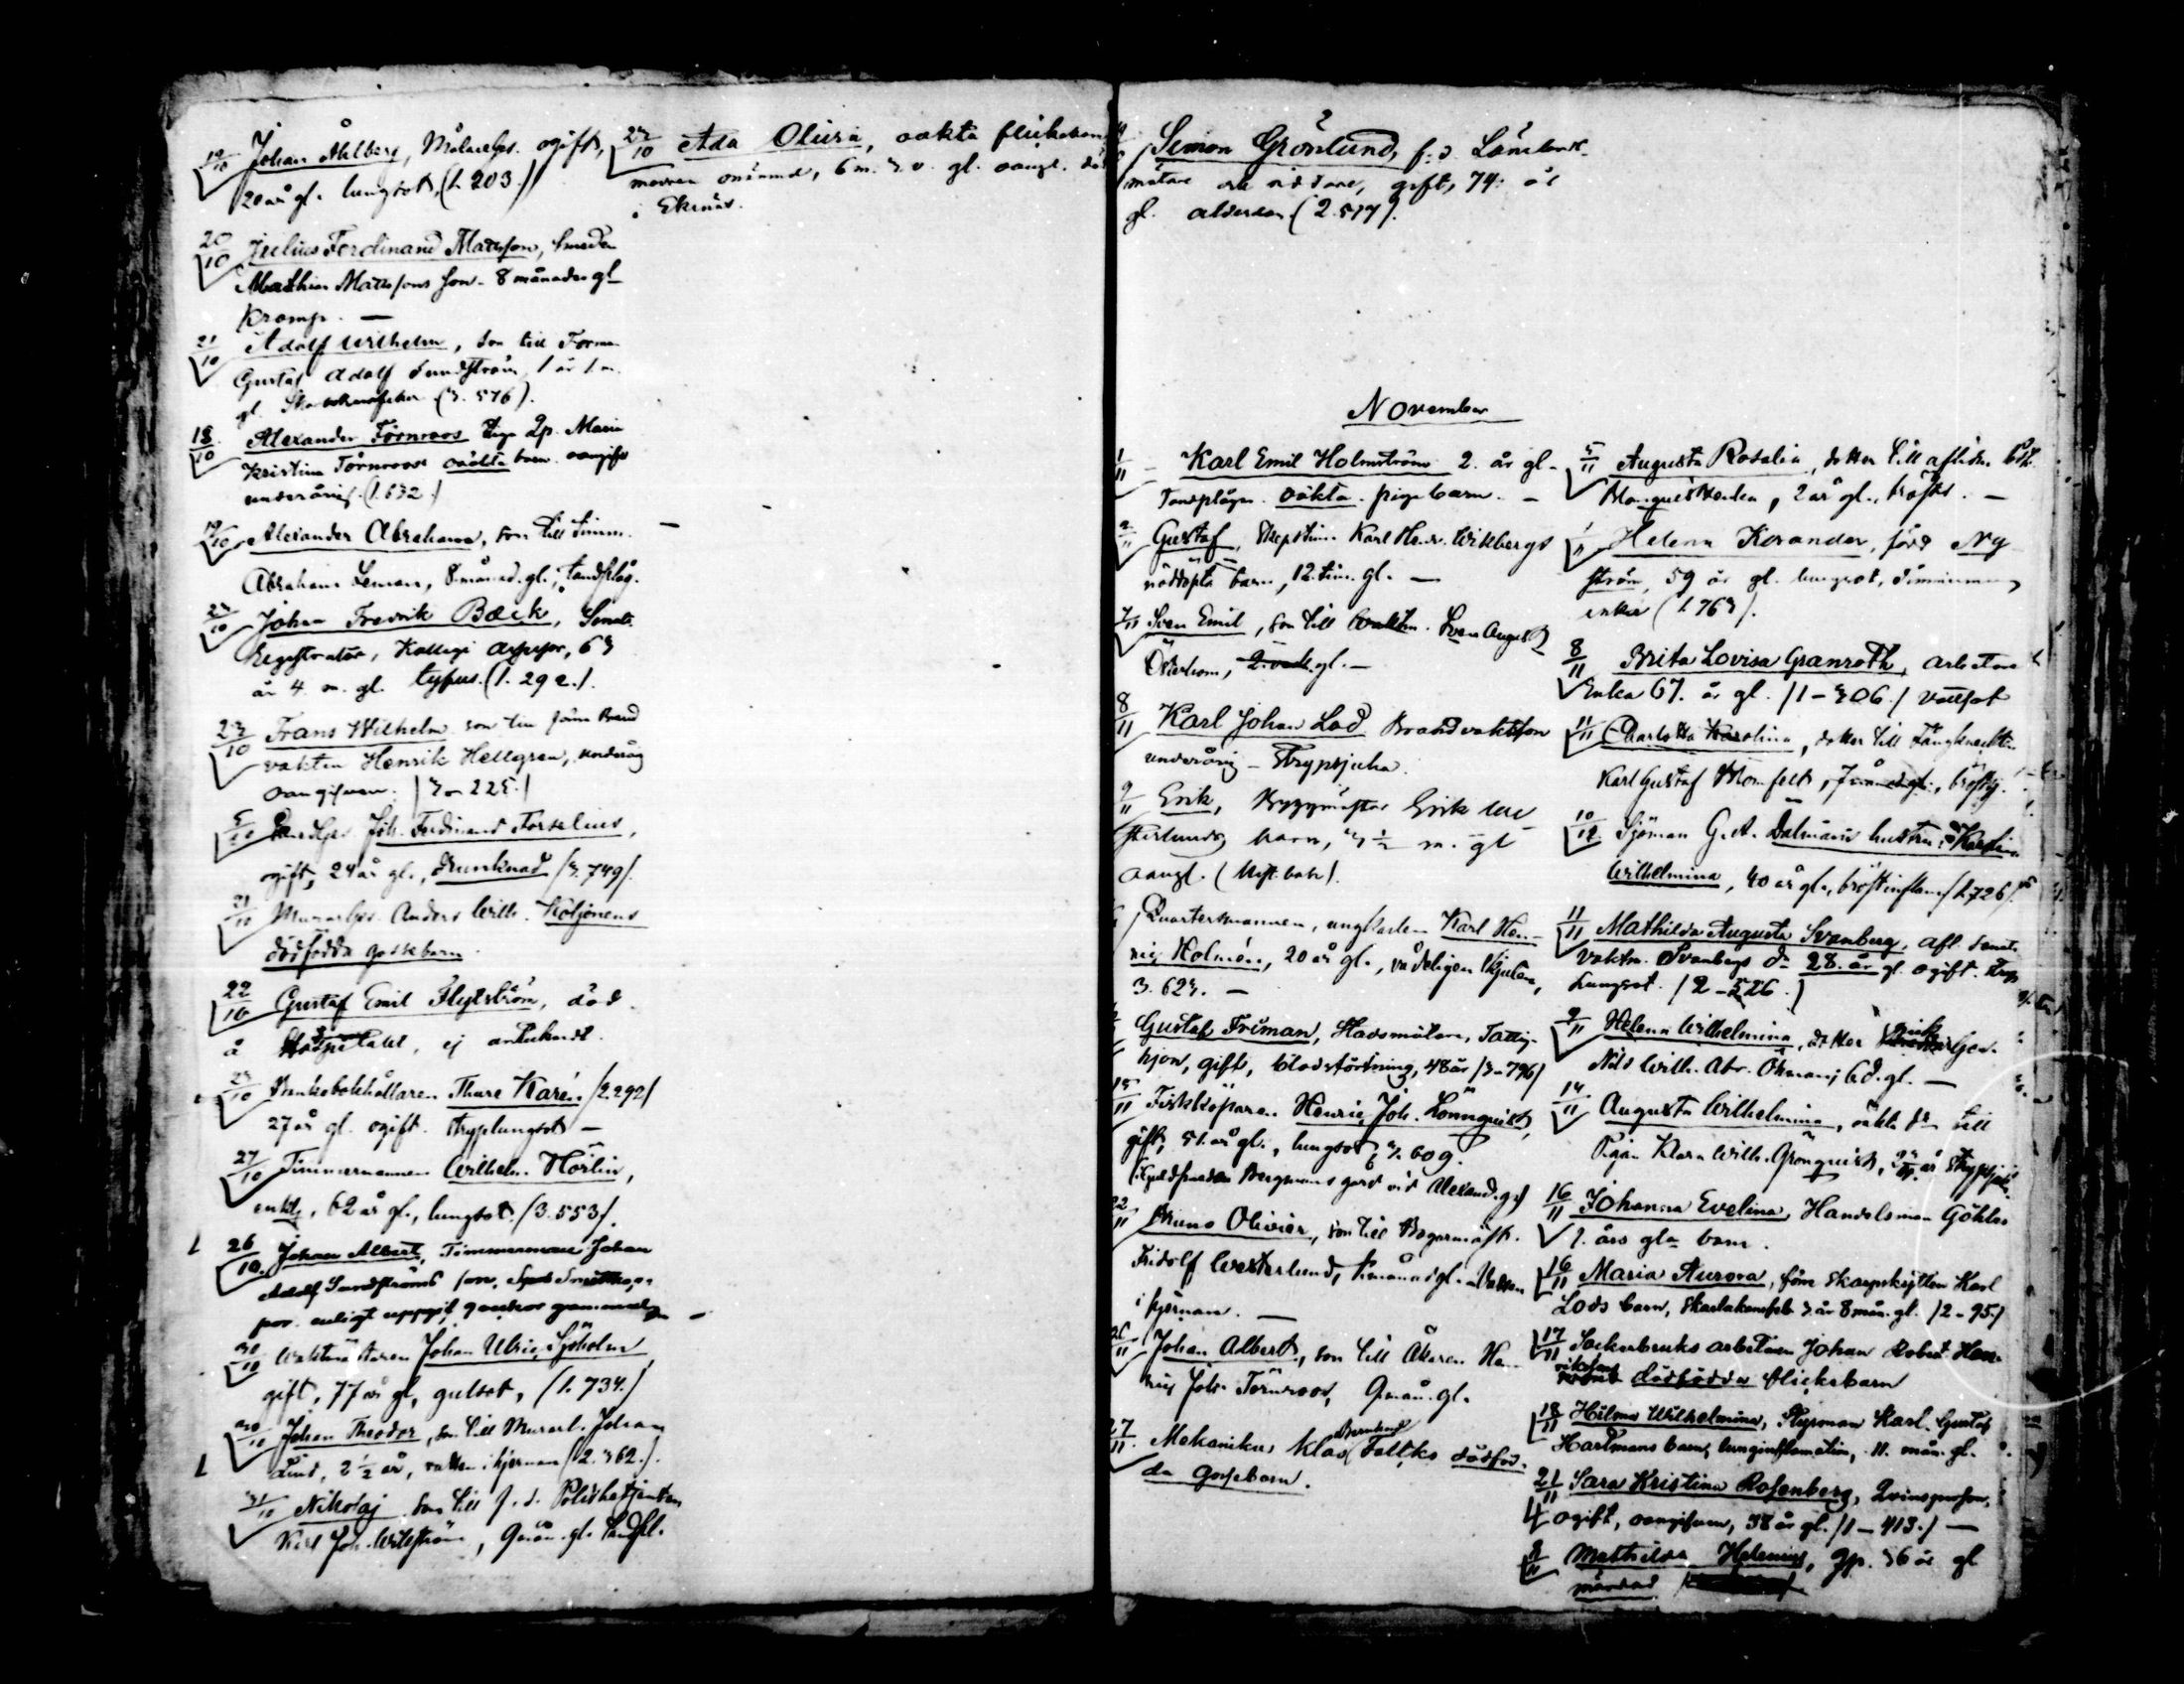 19/10 Johan Åhlberg, Målareges. ogift,
20 år gl. lungsot, (1.203.)
20/10 Julius Ferdinand Mattsson, Smeden
Mathias Mattssons son. 8 månader gl
Kramp. —
21/10 Adolf Wilhelm, son till Forman
Gustaf Adolf Sundström, 1 år 1 m.
gl. (3.576).
18/10 Alexander Törnroos Qp. Maria
Kristina Törnroos oäkta barn oangifv
underårig. (1.632.)
19/10 Alexander Abraham, son till Timm.
Abraham Leman, 8 månad. gl., tandslåg. —
23/10 Johan Fredrik Bæck, Senats
Registrator, Kollegi Assessor, 63
år 4 m. gl. typus. (1.292.)
23/10 Frans Wilhelm son till förra Brand
vakten Henrik Hellgren, underårig
oangifven. (3-225.)
5/10 Joh. Ferdinand Forselius,
ogift, 24 år gl., drunknad (3.749).
21/10 Murarges. Anders Wilh. Koljonens
dödfödda gossebarn
22/10 Gustaf Emil Flytström, död
å Hospitalet, ej anteknadt.
23/10 Bankobokhållaren Thure Karén (2.292)
27 år gl. ogift. Stryplungsot —
27/10 Timmermannen Wilhelm Hörlin,
enkl., 62 år gl., lungsot. (3.553).
1 26/10 Johan Albert, Timmerman Johan
Adolf Sundströms son,
enligt uppgift gammal —
30/10 Waktmästaren Johan Ulric Sjöholm
gift, 77 år gl, gulsot, (1.734.)
1 30/10 Johan Theodor, son till Murarl. Johan
Lind, 2 1/2 år, vatten i hjernan (2.362.).
31/10 Nikolaj son till f.d. Polisbetjenten
Karl Joh. , 9 mån. gl.
23/10 Ada Olivia, oäkta flickebarn
modren onämnd, 6 m. 3 v. gl. oangf. död
i Ekenäs.
2
Simon Grönlund, f.d. Landt-
mätare och riddare, gift, 74 år
gl. ålderdom (2.517).
November
1/11 Karl Emil Holmström 2. år gl.
Tandplågor. oäkta pigebarn. —
2/11 Gustaf, Skepstimm. Karl Henr. Wikbergs
nöddöpta barn, 12 tim. gl. —
7/11 Sven Emil, son till Waktm. Sven August
Österbom, gl. —
8/11 Karl Johan Lod Brandvaktsson
underårig — Strypsjuka.
9/11 Erik, Byggmästar Erik We
sterlunds barn, 3 1/2 m. gl
oangf.
Quartersmannen, ungkarlen Karl Hen-
ric Holmén, 20 år gl., vådeligen skjuten,
3.623. —
Gustaf Friman, Stadsmätare, Fattig-
hjon, gift, blodstörtning, 48 år (3-796)
15/11 Fiskköparen Henric Joh. Lönnqvist,
gift, 51 år gl., lungsot, 3.609.
(i Guldsmeden Bergmans gård vid Alexand.g.)
22/11 Bruno Olivier, son till Bagarmäst.
Fridolf Westerlund, månad gl. Vatten
i hjernan. —
26/11 Johan Albert, son till Åkaren Hen-
ric Joh. Törnroos, 9 mån. gl.
27/11 Mekanikus Klas Bernhard Faltks dödföd-
da gossebarn.
5/11 Augusta Rosalia, dotter till aflidne
2 år gl., bröstsj. —
1/11 Helena Korander, född Ny-
ström, 59 år gl. lungsot, Timmerm.
enka (1.763).
8/11 Brita Lovisa Granroth, arbetare
Enka 67. år gl. (1-306.) Vattsot
11/11 Charlotta Karolina, dotter till Fångknekten
Karl Gustaf Blomfelt, 7 månad gl., bröstsj.
10/12 Sjöman G. A. Dalmans hustru Karolina
Wilhelmina, 40 år gl., bröstinflam. (1.726).
11/11 Mathilda Augusta Svanberg, afl. Senat.
vaktm. Svanbergs dr 28. år gl. ogift. Stryp
Lungsot. (2-526.)
9/11 Helena Wilhelmina, dotter
Nils Wilh. Abr. Öhman, 6 d. gl. —
14/11 Augusta Wilhelmina, oäkta dr till
Pigan Klara Wilh. Grönqvist, år Strypsjuk.
16/11 Johanna Evelina, Handelsman Göhles
1. års gla barn.
16/11 Maria Aurora, förre Skarpskytten Karl
Lods barn, Skarlakansfeb. 3 år 8 mån. gl. (2-95)
17/11 Sockerbruks arbetaren Johan Robert Hen-
rikssons dödfödda flickebarn
18/11 Hilma Wilhelmina, Styrman Karl Gustaf
Hartmans barn, lunginflamation, 11. mån. gl.
21/11 Sara Kristina Rosenberg, Qvinsperson,
ogift, oangifven, 38 år gl. (1-413.) —
8/11 Mathilda Helenius, Qp. 36 år gl
mördad